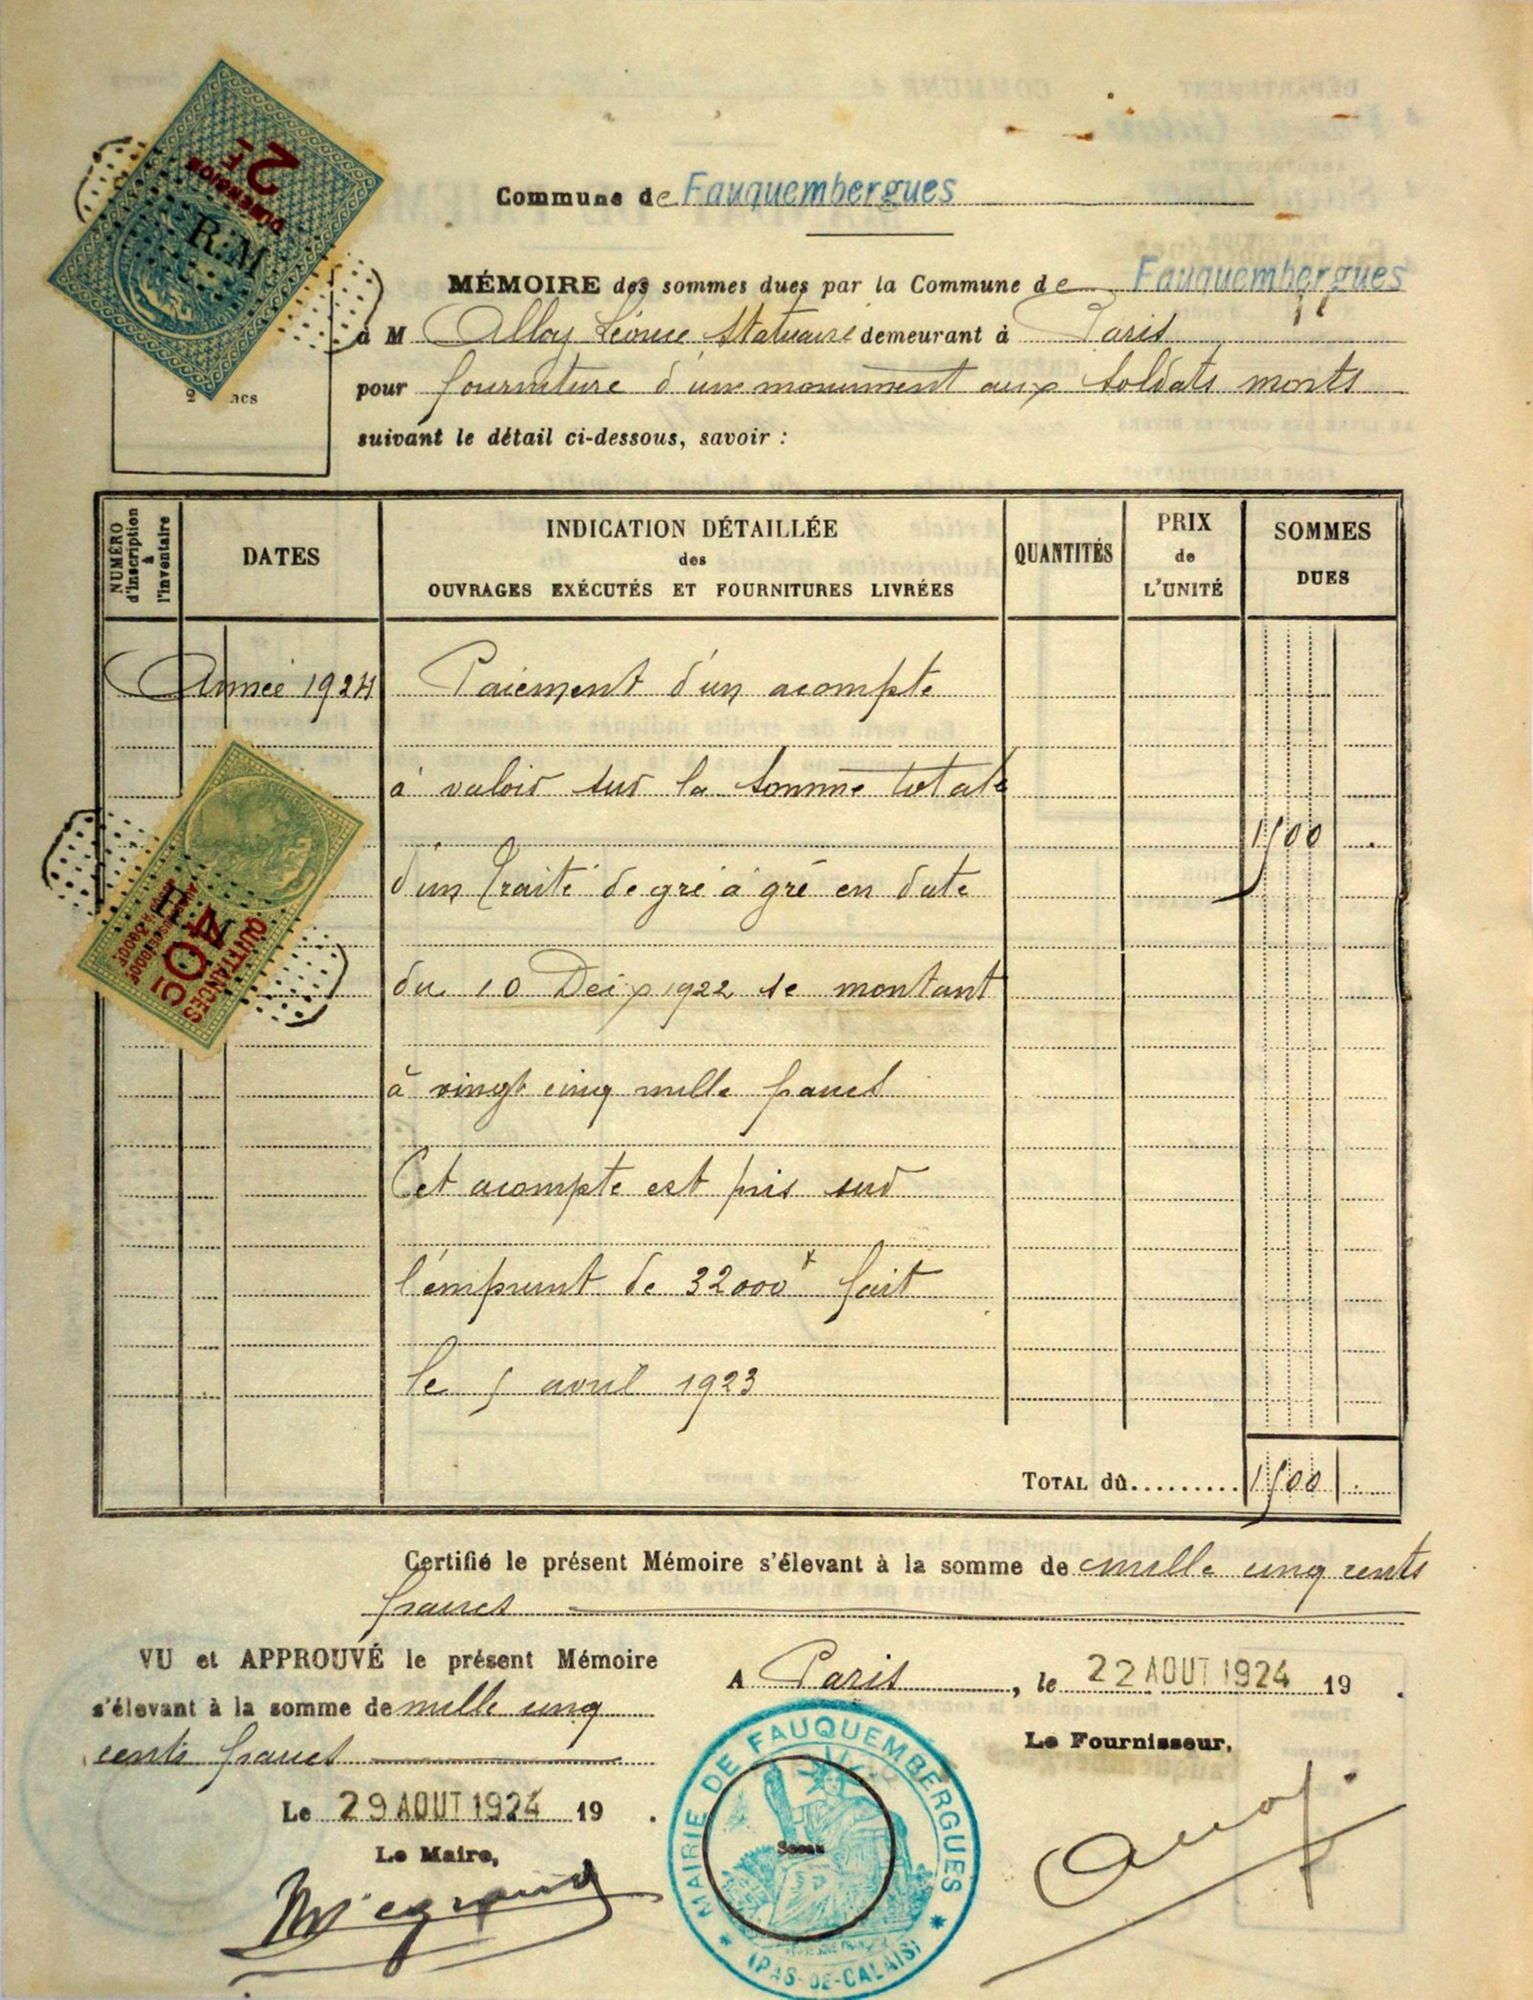 2F
DIMENSION
R.M
Commune de Fauquembergues
MÉMOIRE des sommes dues par la Commune de Fauquembergues
à M Alloy Léonce Statuaire demeurant à Paris
pour fourniture d'un monument aux soldats morts
suivant le détail ci-dessous, savoir :
NUMÉRO d'inscription à l'inventaire
DATES
INDICATION DÉTAILLÉE
des
OUVRAGES EXÉCUTÉS ET FOURNITURES LIVRÉES
QUANTITÉS
PRIX de L'UNITÉ
SOMMES DUES
Année 1924 Paiement d'un acompte
à valoir sur la somme totale
1500
d'un Traité de gré à gré en date
du 10 Dei 1922 se montant
à vingt cinq mille francs
Cet acompte est pris sur
l'emprunt de 32000 f fait
le 5 avril 1923
QUITTANCES
40c
TOTAL dû......... 1500
Certifié le présent Mémoire s'élevant à la somme de mille cinq cents
francs
VU et APPROUVÉ le présent Mémoire
s'élevant à la somme de mille cinq
cents francs
Le 29 AOUT 1924 19 .
Le Maire,
A Paris, le 22 AOUT 1924 19 .
Le Fournisseur,
MAIRIE DE FAUQUEMBERGUES
Sceau
(PAS-DE-CALAIS)
Alloy